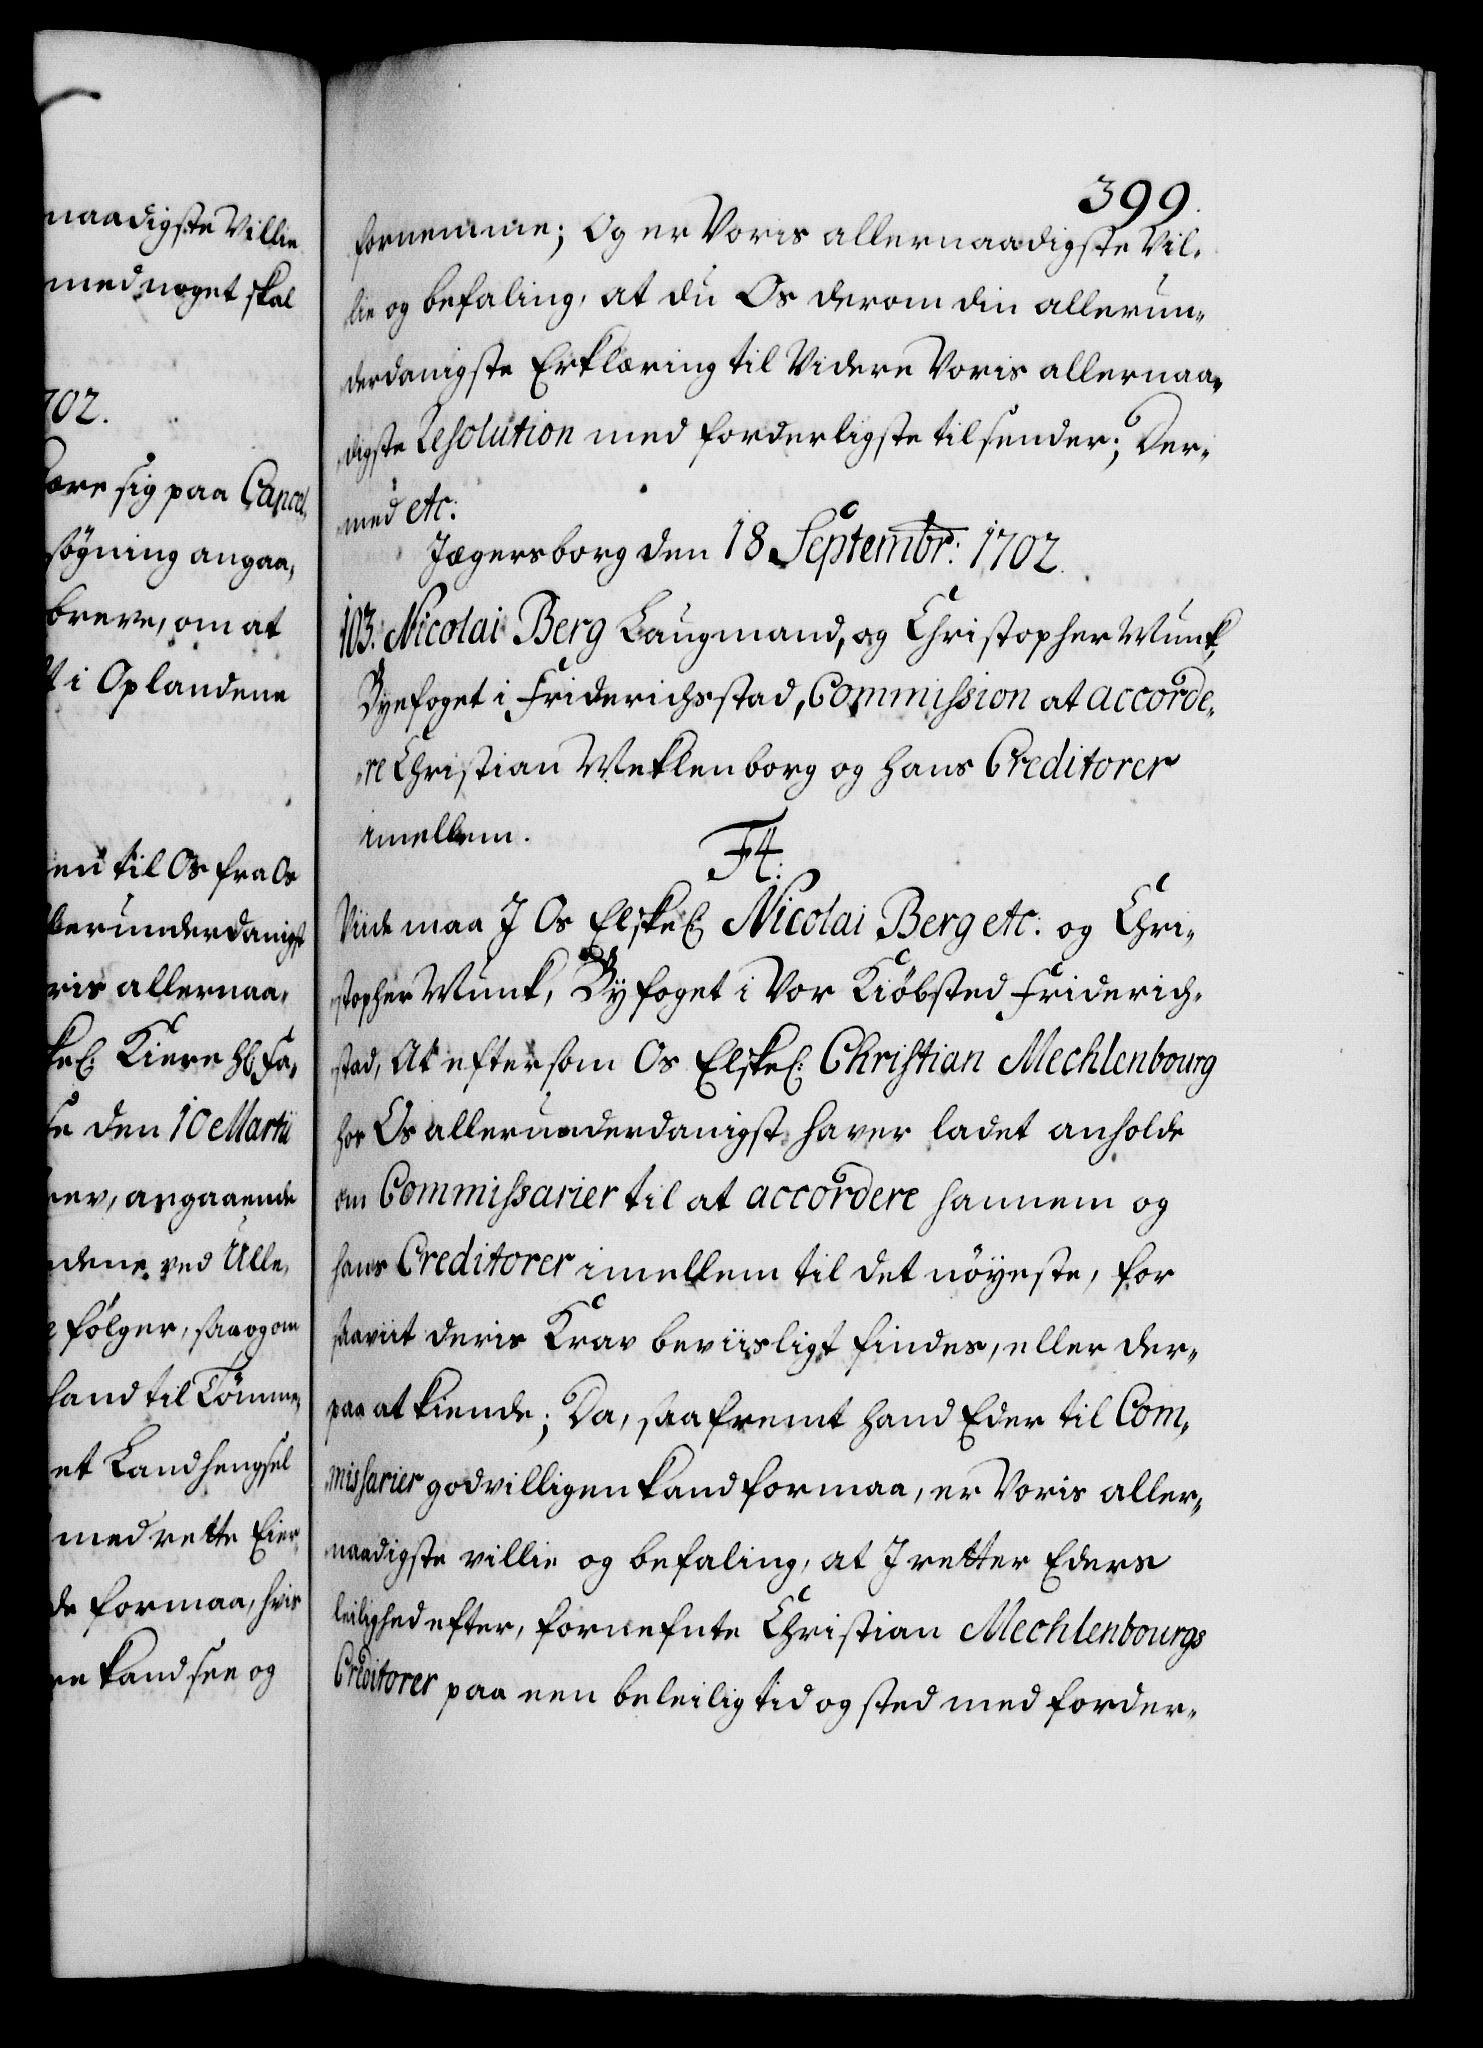 naadigste Villie
med noget skal
702.
lære sig paa Cancel,
søgning angaa,
breve, om at
i Oplandene
en til Os fra Os
allerunderdanigst
ris allernaa,
Elskel: Kiere Hl Fa,
se den 10 Martii
brev, angaaende
dene ved Ulle,
følger, saa og om
hand til Tömme,
et Land hengsel
med rette Eier
de formaa, hvis
re kand see og
399.
fornemme; Og er Voris allernaadigste Vil,
lie og befaling, at du Os derom din allerun,
derdanigste Erklæring til Videre Voris allernaa,
digste Resolution med forderligste tilsender; Der,
med etc:
Jægersborg den 18 Septembr: 1702.
103. Nicolai Berg Laugmand, og Christopher Munk,
Byefoget i Friderichsstad, Commission at accorde,
re Christian Meklenborg og hans Creditorer
imellem.
F4.
Viide maa I Os Elskel: Nicolai Berg etc: og Chri,
stopher Munk, Byfoget i Vor Kiöbsted Friderich,
stad, At eftersom Os Elskel: Christian Mechlenbourg
hos Os allerunderdanigst haver ladet anholde
om Commissarier til at accordere hannem og
hans Creditorer imellem til det nöyeste, for
saaviit deris Krav beviisligt findes, eller der,
paa at kiende; Da, saafremt hand Eder til Com,
missarier godvilligen kand formaa, er Voris aller,
naadigste villie og befaling, at I retter Eders
leilighed efter, fornefnte Christian Mechlenbourgs
Creditorer paa een beleilig tid og sted med forder,